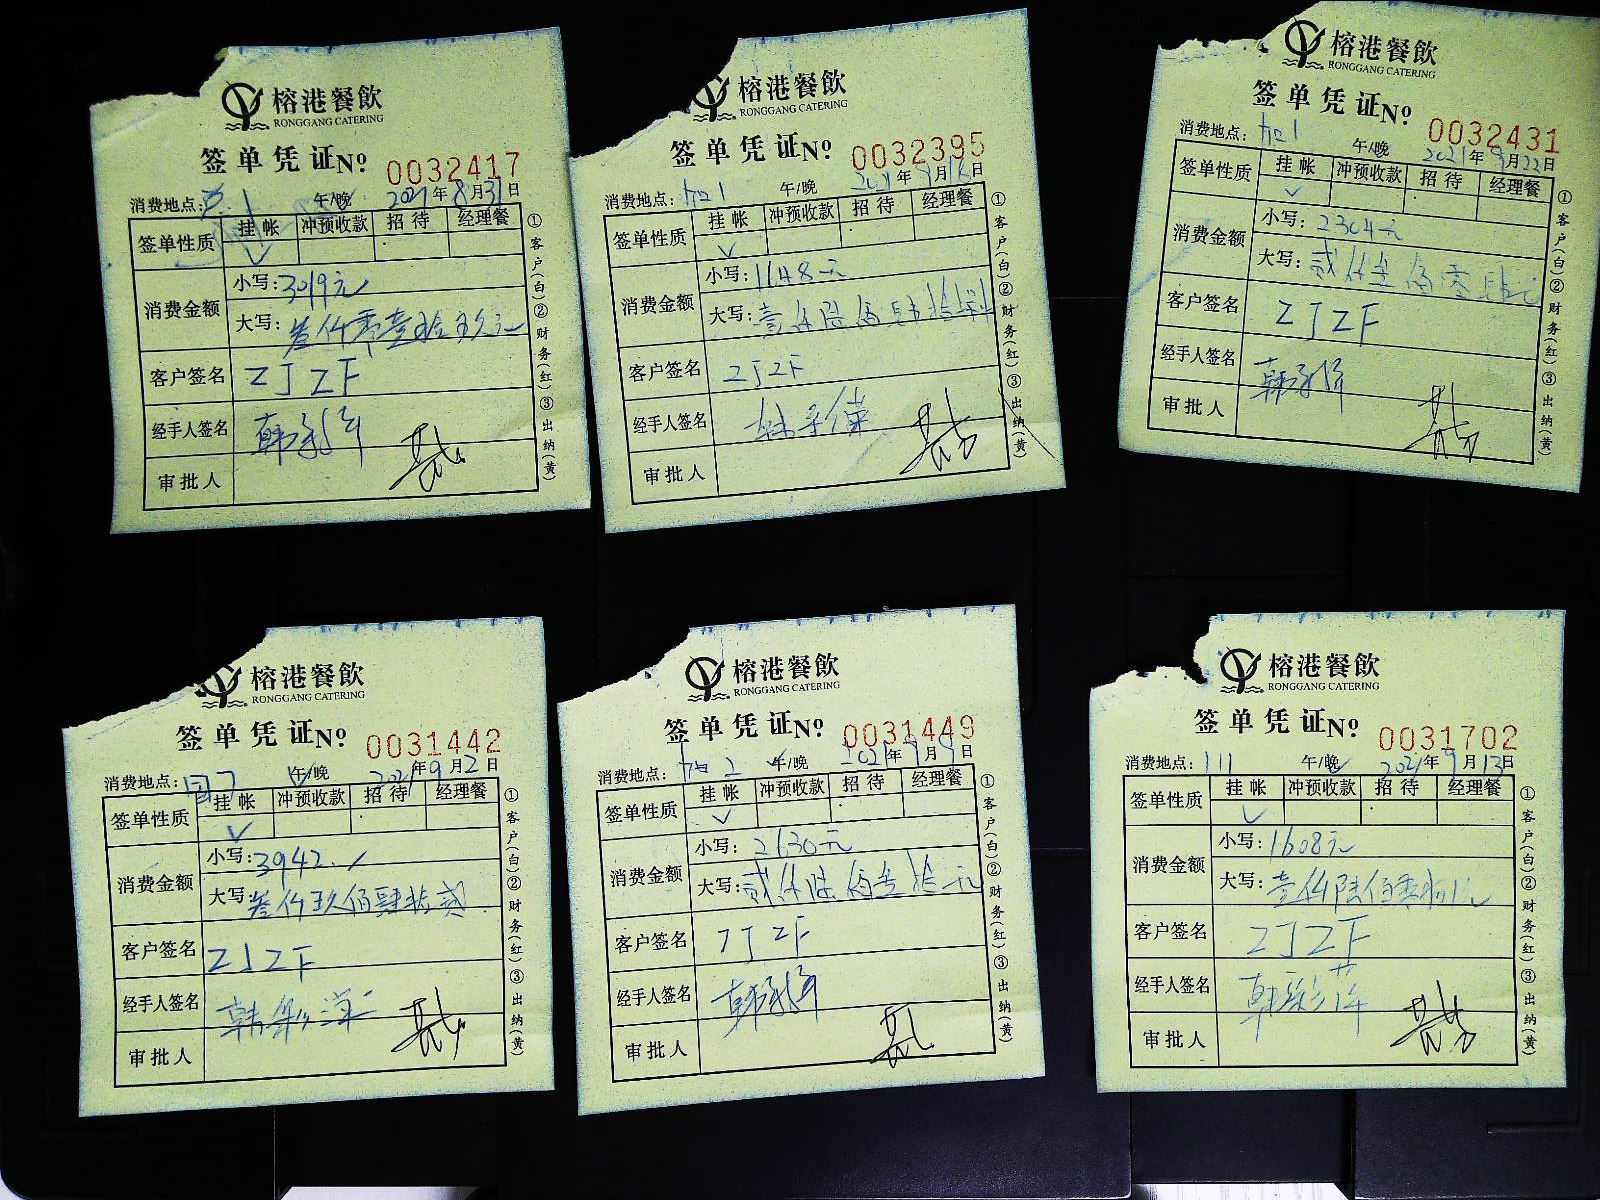 榕港餐飲
RONGGANG CATERING
签单凭证No 0032417
消费地点: 午/晚 2021年8月31日
签单性质 挂帐 冲预收款 招待 经理餐
消费金额
小写:3019元
大写:叁仟零壹拾玖元
客户签名 ZJZF
经手人签名
审批人
①客户(白)②财务(红)③出纳(黄)
榕港餐飲
RONGGANG CATERING
签单凭证No 0032395
消费地点: 午/晚 2021年9月 日
签单性质 挂帐 冲预收款 招待 经理餐
消费金额
小写:1648元
大写:壹仟陆佰肆拾捌
客户签名 ZJZF
经手人签名
审批人
①客户(白)②财务(红)③出纳(黄)
榕港餐飲
RONGGANG CATERING
签单凭证No 0032431
消费地点: 午/晚 2021年9月22日
签单性质 挂帐 冲预收款 招待 经理餐
消费金额
小写:2304元
大写:贰仟叁佰零肆元
客户签名 ZJZF
经手人签名
审批人
①客户(白)②财务(红)③出纳(黄)
榕港餐飲
RONGGANG CATERING
签单凭证No 0031442
消费地点: 午/晚 2021年9月2日
签单性质 挂帐 冲预收款 招待 经理餐
消费金额
小写:3942.
大写:叁仟玖佰肆拾贰
客户签名 ZJZF
经手人签名
审批人
①客户(白)②财务(红)③出纳(黄)
榕港餐飲
RONGGANG CATERING
签单凭证No 0031449
消费地点: 午/晚 2021年9月9日
签单性质 挂帐 冲预收款 招待 经理餐
消费金额
小写:2630元
大写:贰仟陆佰叁拾元
客户签名 ZJZF
经手人签名
审批人
①客户(白)②财务(红)③出纳(黄)
榕港餐飲
RONGGANG CATERING
签单凭证No 0031702
消费地点:111 午/晚 2021年9月13日
签单性质 挂帐 冲预收款 招待 经理餐
消费金额
小写:1608元
大写:壹仟陆佰零捌元
客户签名 ZJZF
经手人签名
审批人
①客户(白)②财务(红)③出纳(黄)